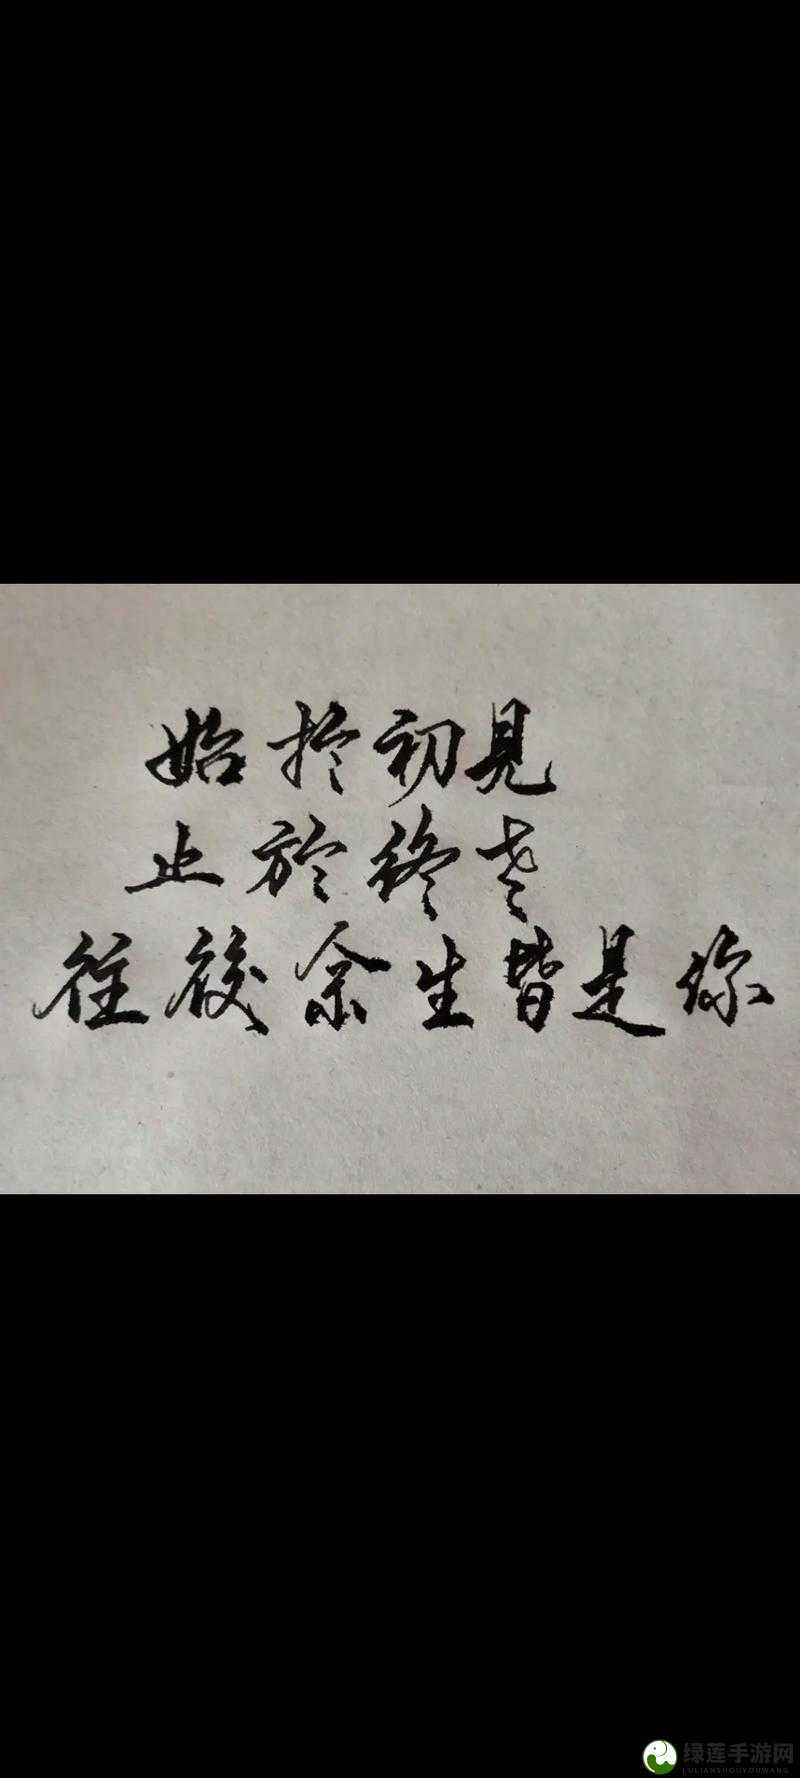 始於初見
止於終老
往後余生皆是你
绿莲手游网
LULIANSHOUYOUWANG